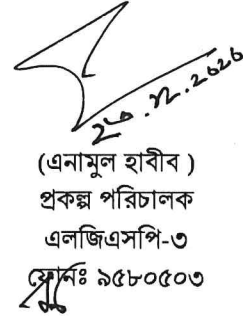 (এনামুল হাবীব )
প্রকল্প পরিচালক
এলজিএসপি-৩
ফোনঃ ৯৫৮০৫০৩